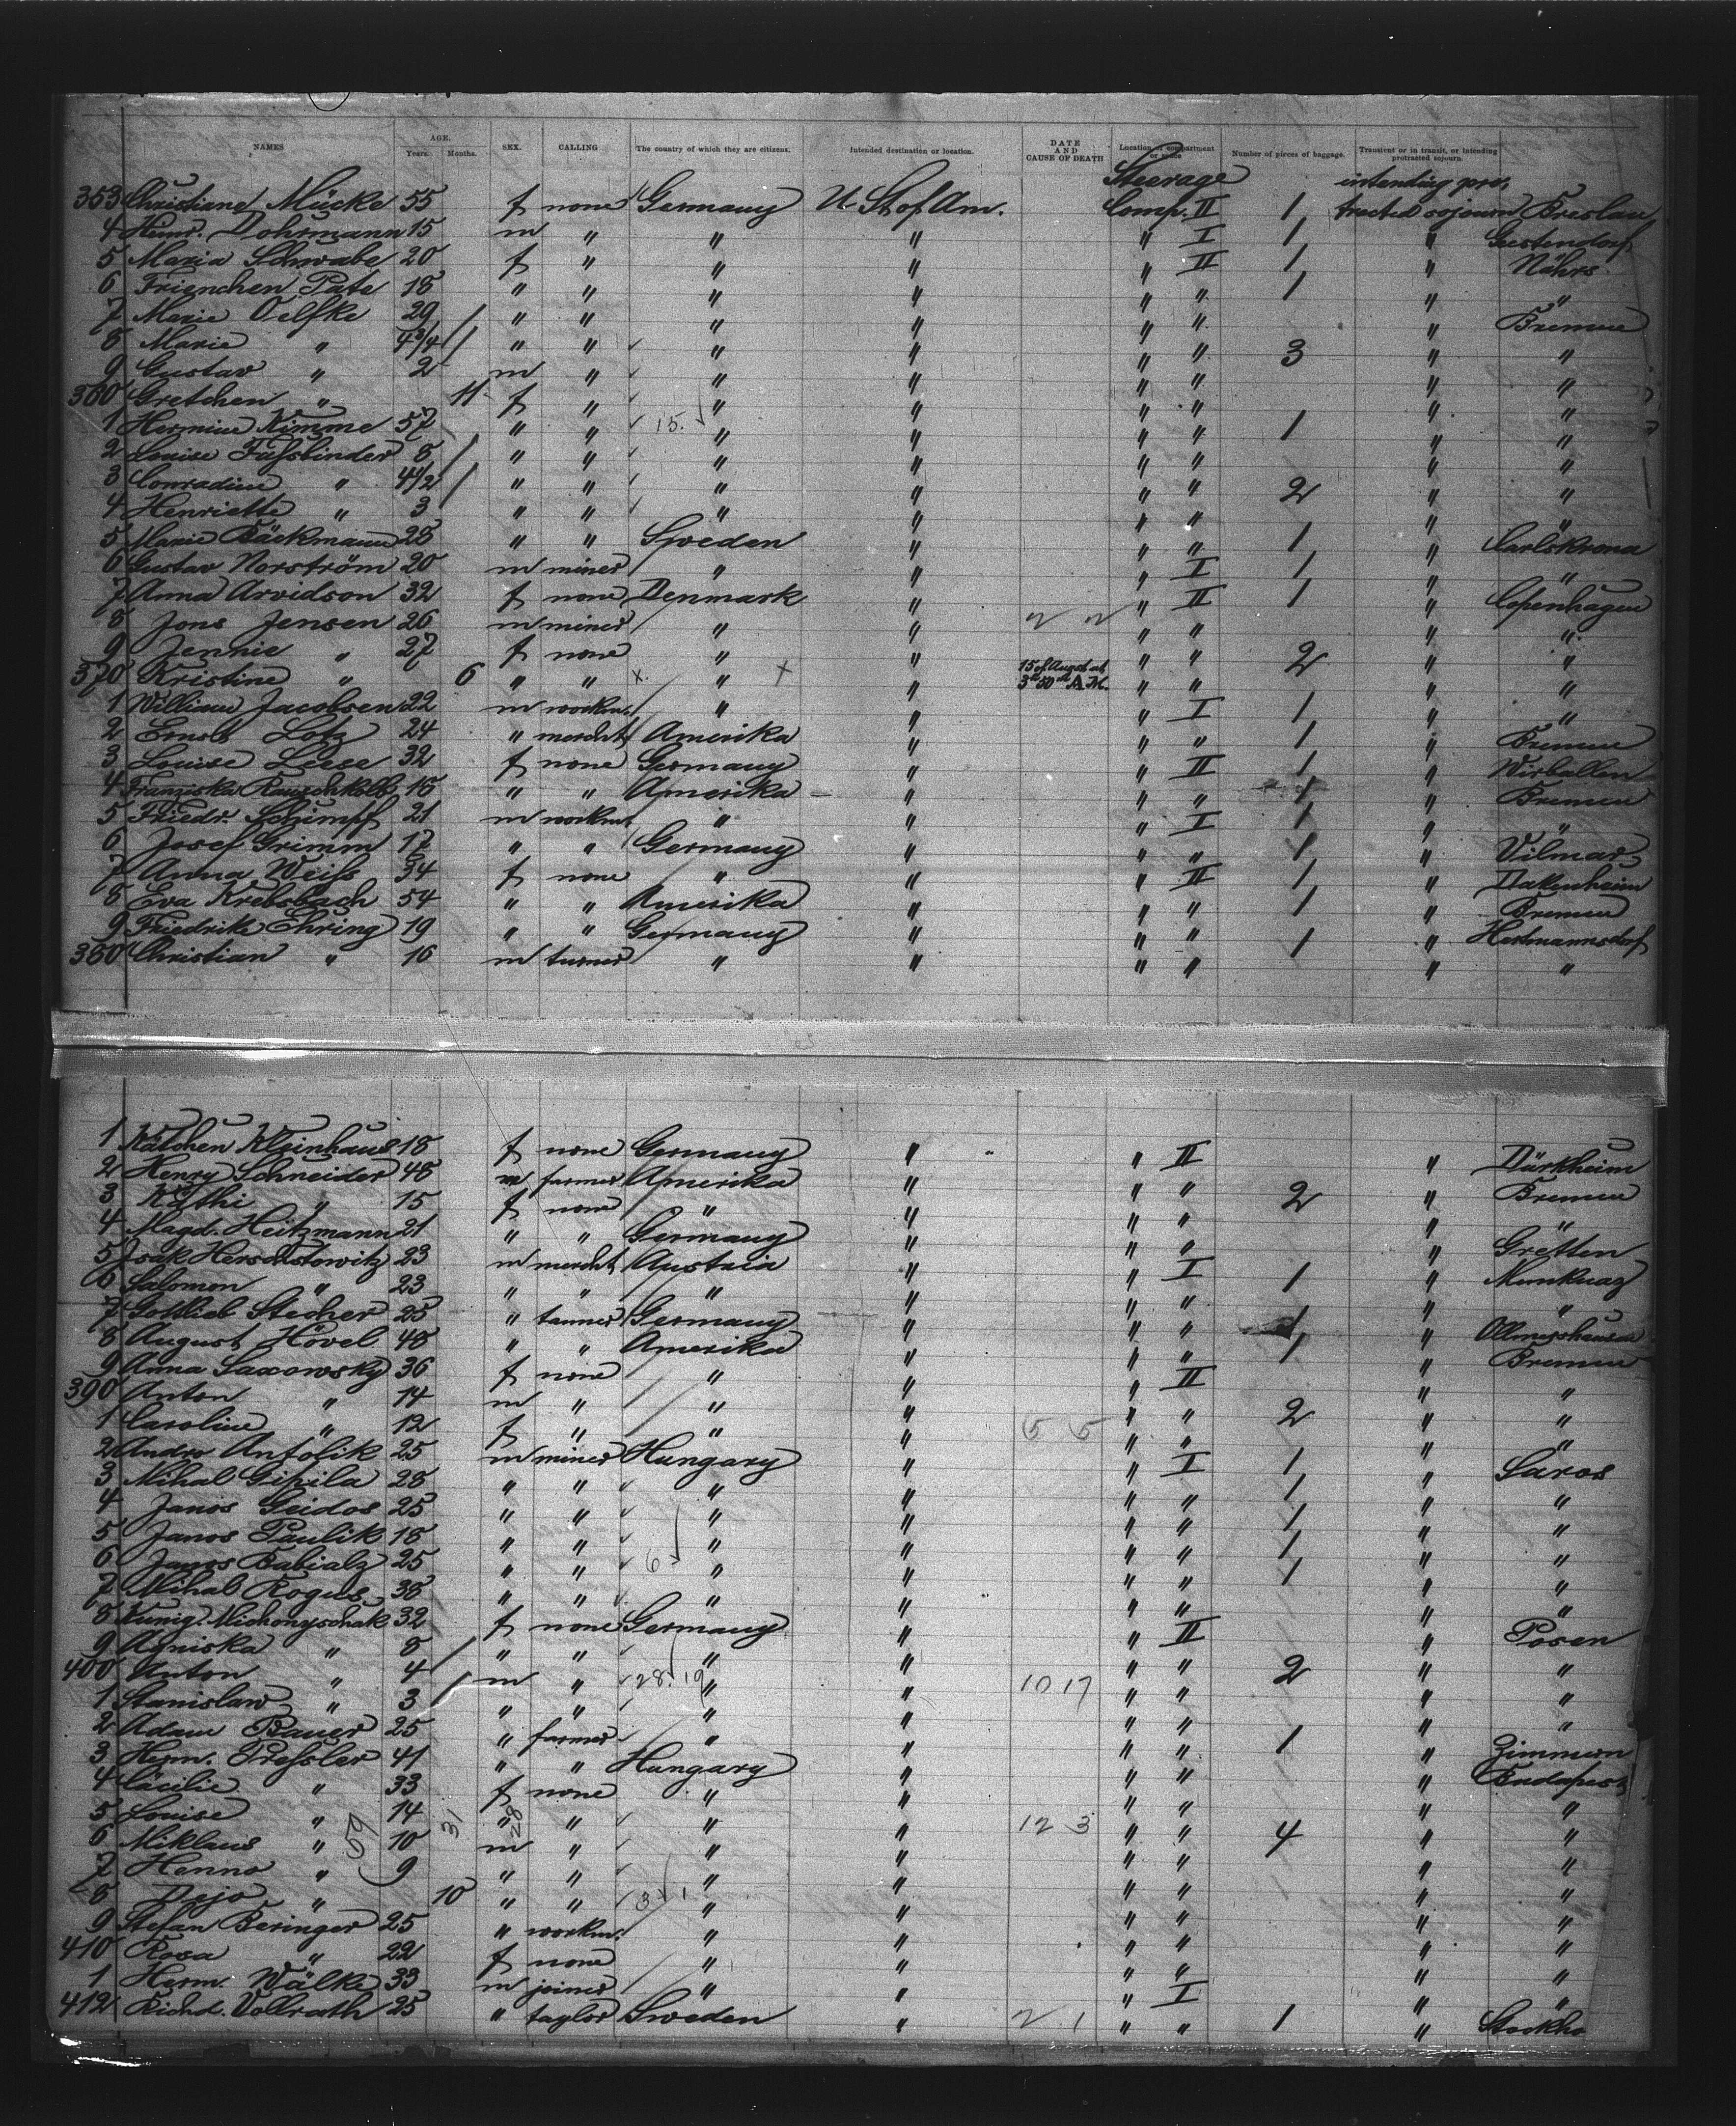 NAMES AGE. Years. Months. SEX. CALLING The country of which they are citizens. Intended destination or location. DATE AND CAUSE OF DEATH Location of compartment or space Number of pieces of baggage. Transient or in transit, or intending protracted sojourn.
Steerage intending pro-
353 Christiane Mücke 55 f none Germany U. St. of Am. Comp. II 1 tracted sojourn Breslau
4 Heinr. Dohrmann 15 m " " " " I 1 " Geestendorf
5 Maria Schwabe 20 f " " " " II 1 " Nährs
6 Frienchen Pate 18 " " " " " " 1 " "
7 Marie Oelfke 29 " " " " " " " Bremen
8 Marie " 4 3/4 " " " " " " 3 " "
9 Gustav " 2 m " " " " " " "
360 Gretchen " 11 f " " " " " " "
1 Hermine Kimme 57 " " 15. " " " " 1 " "
2 Louise Fußbinder 8 " " " " " " " "
3 Conradine " 4 1/2 " " " " " " 2 " "
4 Henriette " 3 " " " " " " " "
5 Marie Bäckmann 28 " " Sweden " " " 1 " Carlskrona
6 Gustav Norström 20 m miner " " " I 1 " "
7 Anna Arvidson 32 f none Denmark " " II 1 " Copenhagen
8 Jons Jensen 26 m miner " " 2 2 " " " "
9 Jennie " 27 f none " " " " 2 " "
370 Kristine " 6 " " x " x " 15 of August at 3h 50m A.M. " " " "
1 William Jacobsen 22 m workm. " " " I 1 " "
2 Ernst Lotz 24 " mercht Amerika " " " 1 " Bremen
3 Louise Leese 32 f none Germany " " II 1 " Wirballen
4 Franziska Rauschkolb 18 " " Amerika " " " 1 " Bremen
5 Friedr. Schimpf 21 m workm. " " " I 1 " "
6 Josef Grimm 17 " " Germany " " " 1 " Vilmar
7 Anna Weiß 34 f none " " " II 1 " Dakenheim
8 Eva Krebsbach 54 " " Amerika " " " 1 " Bremen
9 Friedrike Ehring 19 " " Germany " " " 1 " Hartmannsdorf
380 Christian " 16 m turner " " " " " "
1 Kätchen Kleinhaus 18 f none Germany " " II " Dürkheim
2 Henry Schneider 48 m farmer Amerika " " " 2 " Bremen
3 Käthi " 15 f none " " " " " "
4 Magd. Heitzmann 21 " " Germany " " " " Gretten
5 Isak Herschkowitz 23 m mercht Austria " " I 1 " Munkacz
6 Salomon " 23 " " " " " " " "
7 Gottlieb Stecher 25 " tanner Germany " " " 1 "
8 August Hövel 48 " " Amerika " " " 1 " Bremen
9 Anna Saxowsky 36 f none " " " II " "
390 Anton " 14 m " " " " " 2 " "
1 Caroline " 12 f " " " 5 5 " " " "
2 Andro Antolik 25 m miner Hungary " " I 1 " Saros
3 Mihal Gipila 28 " " " " " " 1 " "
4 Janos Geidos 25 " " " " " " 1 " "
5 Janos Paulik 18 " " " " " " 1 " "
6 Janos Babialz 25 " " 6 " " " " 1 " "
7 Mihal Rogus 38 " " " " " " " "
8 Kunig. Michonyschak 32 f none Germany " " II " Posen
9 Agniska " 8 " " " " " " " "
400 Anton " 4 m " 28. 19 " " 10 17 " " 2 " "
1 Stanislaw " 3 " " " " " " " "
2 Adam Bauer 25 " farmer " " " " 1 " Zimmern
3 Herm. Preßler 41 " " Hungary " " " " Budapest
4 Cäcilie " 33 f none " " " " " "
5 Louise " 14 31 28 " " " " 12 3 " " " "
6 Miklaus " 59 10 m " " " " " 4 " "
7 Henno " 9 " " " " " " " "
8 Dejo " 10 " " 3 1 " " " " " "
9 Stefan Beringer 25 " workm. " " " " " "
410 Rosa " 22 f none " " " " " "
1 Herm. Wälke 33 m joiner " " " I " "
412 Richd. Vollrath 25 " taylor Sweden " 2 1 " " 1 " Stockho